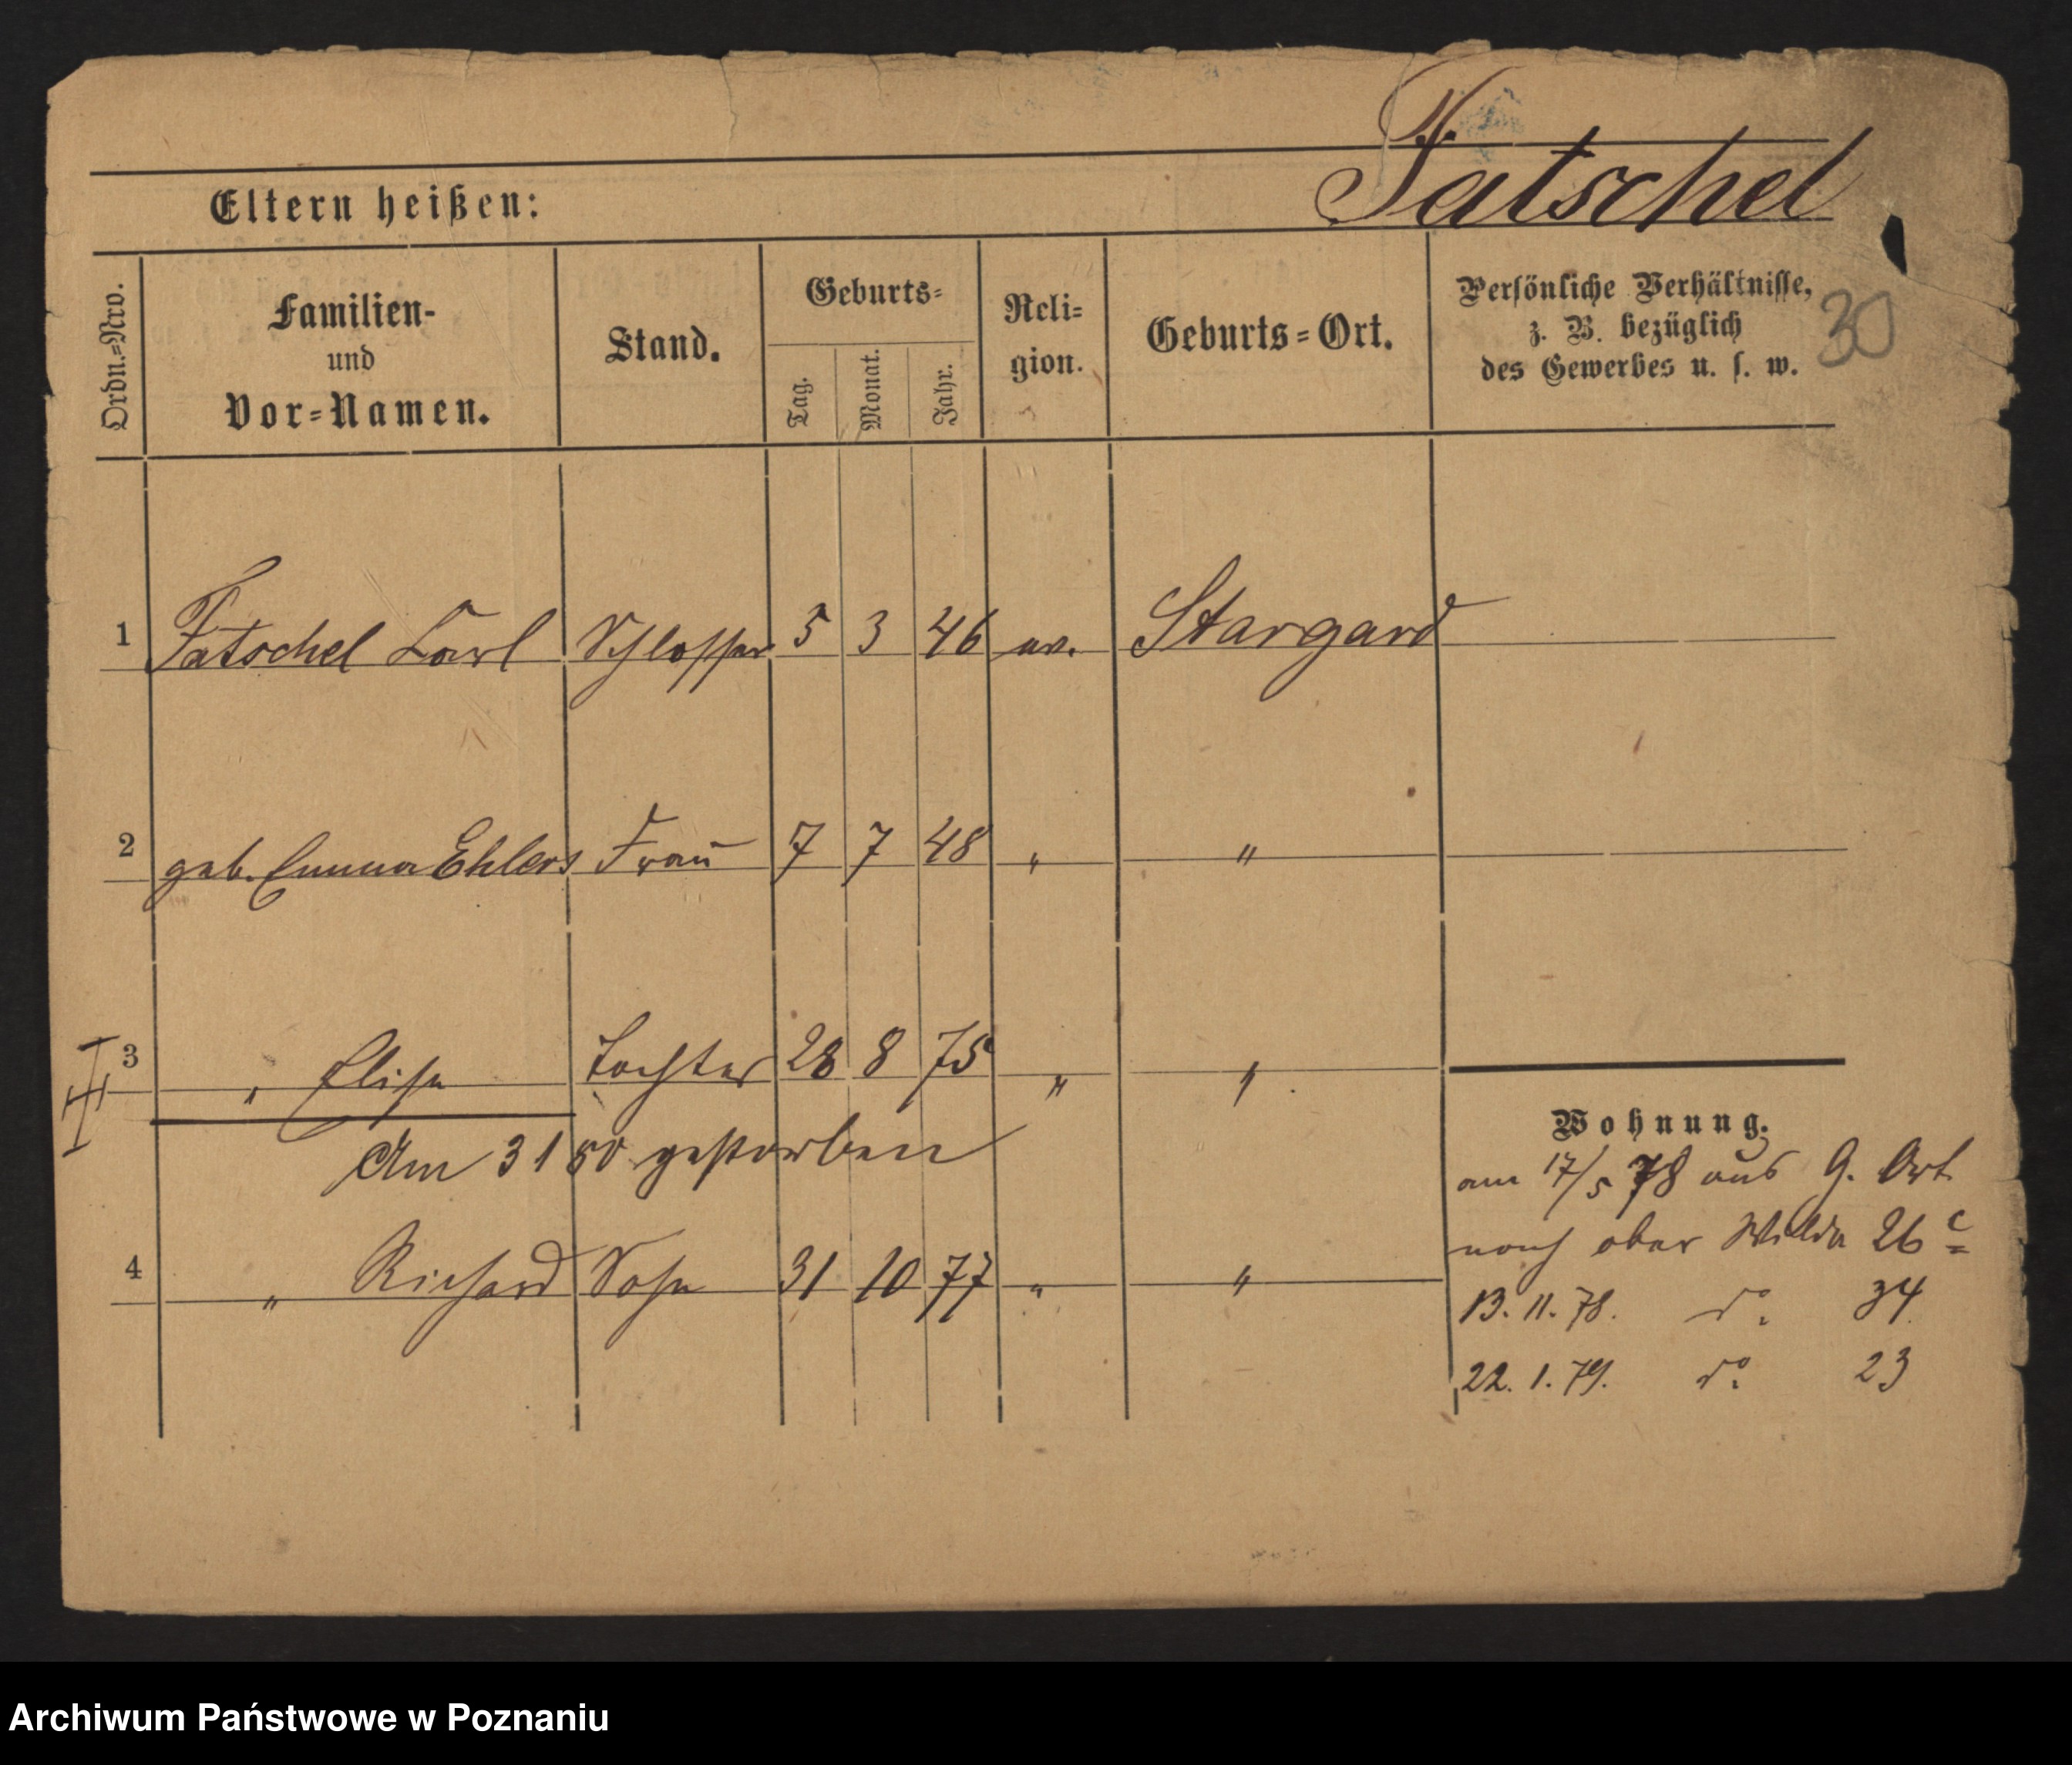 Fatschel
Eltern heißen:
30
Ordn.=Nro.
Familien-
und
Vor=Namen.
Stand.
Geburts=
Tag.
Monat.
Jahr.
Reli=
gion.
Geburts=Ort.
Persönliche Verhältnisse,
z. B. bezüglich
des Gewerbes u. s. w.
1 Fatschel Carl Schlosser 5 3 46 ev. Stargard
2 geb. Emma Ehlers Frau 7 7 48 " "
3 " Elise Tochter 28 8 75 " "
Am 3 1 80 gestorben
4 " Richard Sohn 31 10 77 " "
Wohnung.
am 17/5 78 aus G. Ort
nach ober Wilda 26 c
13. 11. 78. do. 34.
22. 1. 79. do. 23
Archiwum Państwowe w Poznaniu